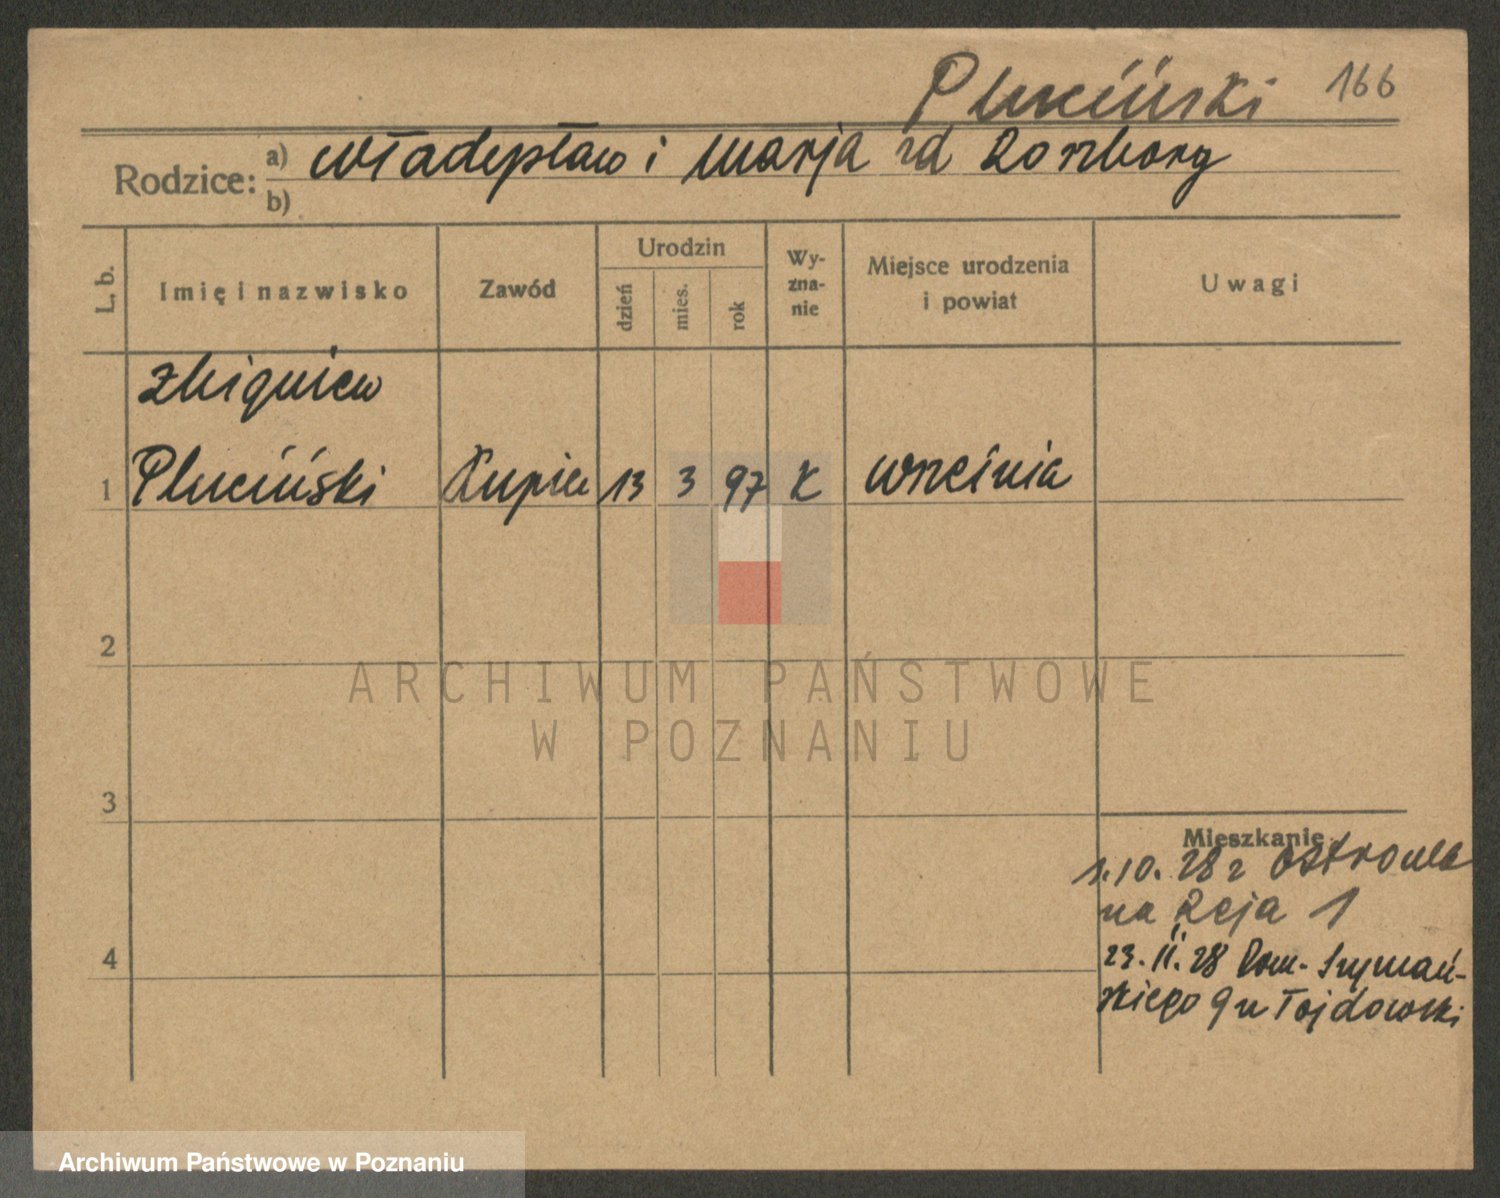 Pluciński 166
Rodzice: a) Władysław i Marja zd
b)
L. b.
Imię i nazwisko
Zawód
Urodzin
dzień
mies.
rok
Wy-
zna-
nie
Miejsce urodzenia
i powiat
Uwagi
Zbigniew
1 Pluciński Kupiec 13 3 97 K Września
2
ARCHIWUM PAŃSTWOWE
W POZNANIU
3
Mieszkanie
1.10.28 z Ostrowa
na Reja 1
4
23.11.28 Dom. Szymań-
skiego 9 u Tojdowski
Archiwum Państwowe w Poznaniu